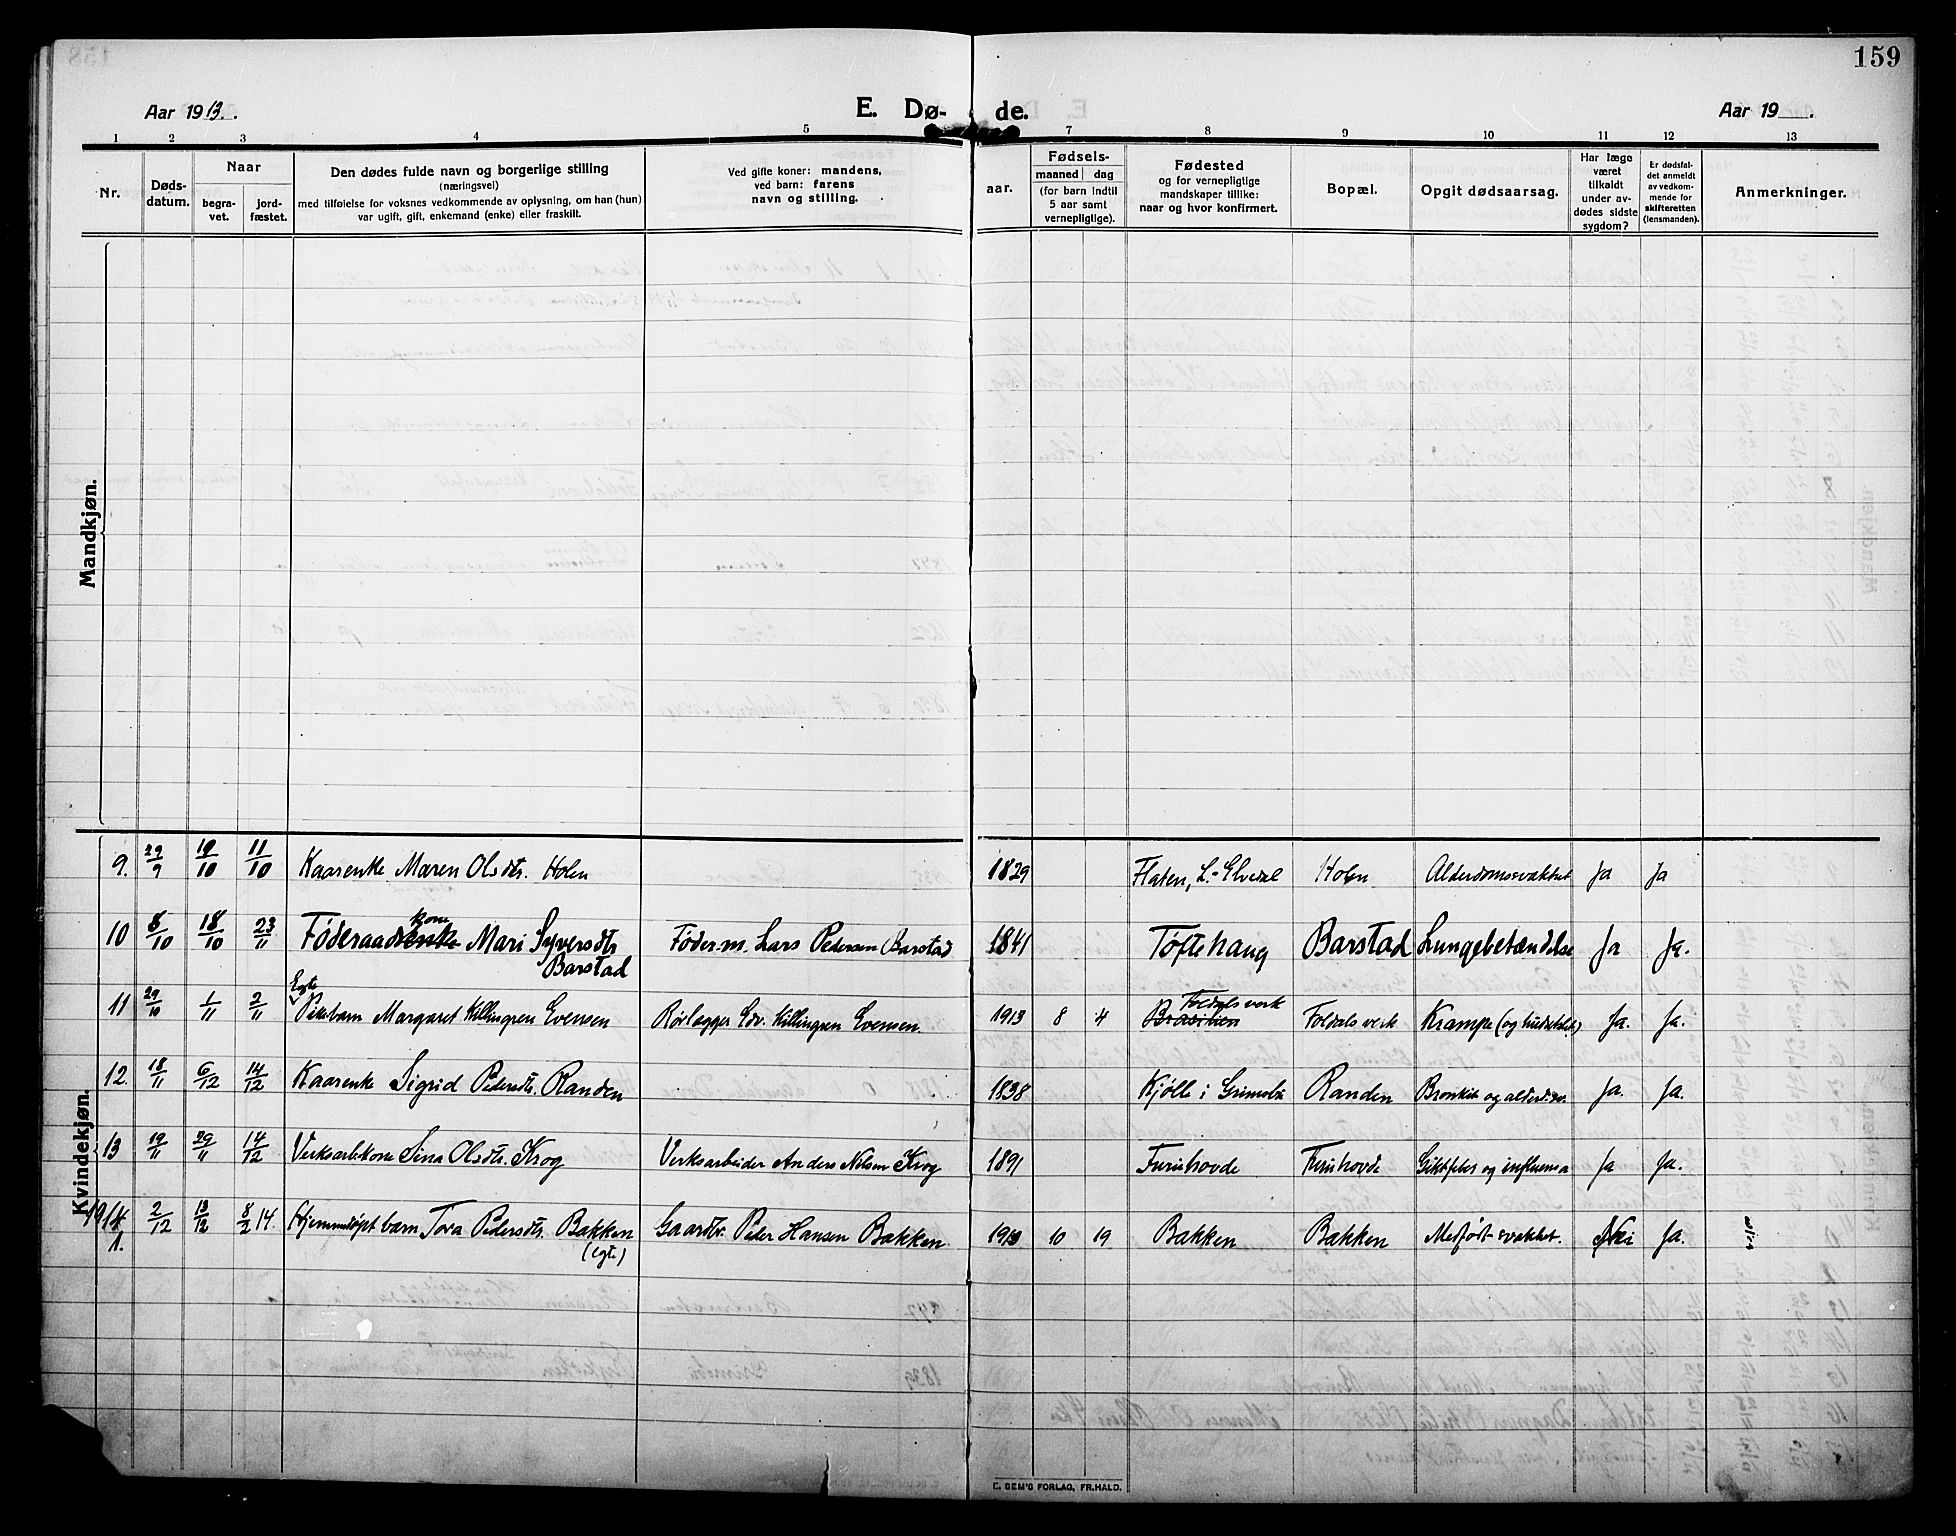 159
Aar 1913.
E. Dø- de.
Aar 19 .
1 2 3 4 5 7 8 9 10 11 12 13
Nr.
Døds-
datum.
Naar
begra-
vet.
jord-
fæstet.
Den dødes fulde navn og borgerlige stilling
(næringsvei)
med tilføielse for voksnes vedkommende av oplysning, om han (hun)
var ugift, gift, enkemand (enke) eller fraskilt.
Ved gifte koner: mandens,
ved barn: farens
navn og stilling.
aar.
Fødsels-
maaned dag
(for barn indtil
5 aar samt
vernepligtige).
Fødested
og for vernepligtige
mandskaper tillike:
naar og hvor konfirmert.
Bopæl.
Opgit dødsaarsag.
Har læge
været
tilkaldt
under av-
dødes sidste
sygdom?
Er dødsfal-
det anmeldt
av vedkom-
mende for
skifteretten
(lensmanden).
Anmerkninger.
Mandkjøn.
Kvindekjøn.
9. 29/9 19/10 11/10 Kaarenke Maren Olsdtr. Holen 1829 Flaten, L.-Elvedal Holen Alderdomssvakhet Ja Ja
kone
10 8/10 18/10 23/11 Føderaadsenke Mari Syversdtr Føder.m. Lars Pedersen Barstad 1841 Tøftehaug Barstad Lungebetændelse Ja Ja.
Barstad
Egte Foldals verk
11 29/10 1/11 2/11 Pikebarn Margaret Killingren Evensen Rørlægger Edv. Killingren Evensen. 1913 8 4 Foldals verk Krampe Ja. Ja.
12. 18/11 6/12 14/12 Kaarenke Sigrid Pedersdtr. Randen 1838 Kjølle i Grimsbu Randen Bronkit og alderd.sv. Ja. Ja.
13 19/11 29/11 14/12 Verksarb.kone Sina Olsdtr. Krog Verksarbeider Anders Nilsen Krog 1891 Furuhovde Furuhovde Giktfeber og influensa Ja Ja.
1914 2/12 13/12 8/2 14. Hjemmedøpt barn Tora Pedersdtr. Bakken Gaardbr. Peder Hansen Bakken. 1913 10 19 Bakken Bakken Medfødt svakhet. Nei Ja.
1. (egte)
E. SEM'S FORLAG, FR.HALD.